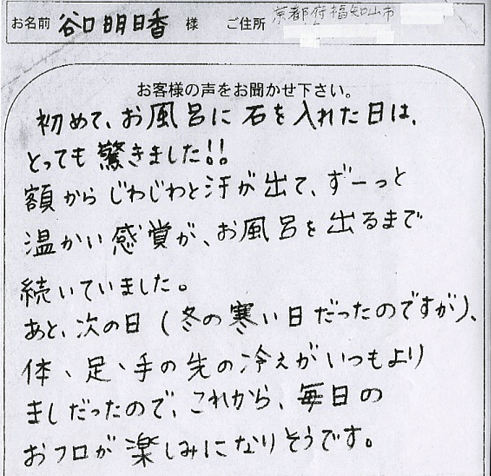 お名前 谷口明日香 様 ご住所 京都府福知山市
お客様の声をお聞かせ下さい。
初めて、お風呂に石を入れた日は、
とっても驚きました!!
額からじわじわと汗が出て、ずーっと
温かい感賞が、お風呂を出るまで
続いていました。
あと、次の日(冬の寒い日だったのですが)、
体、足、手の先の冷えがいつもより
ましだったので、これから、毎日の
おフロが楽しみになりそうです。